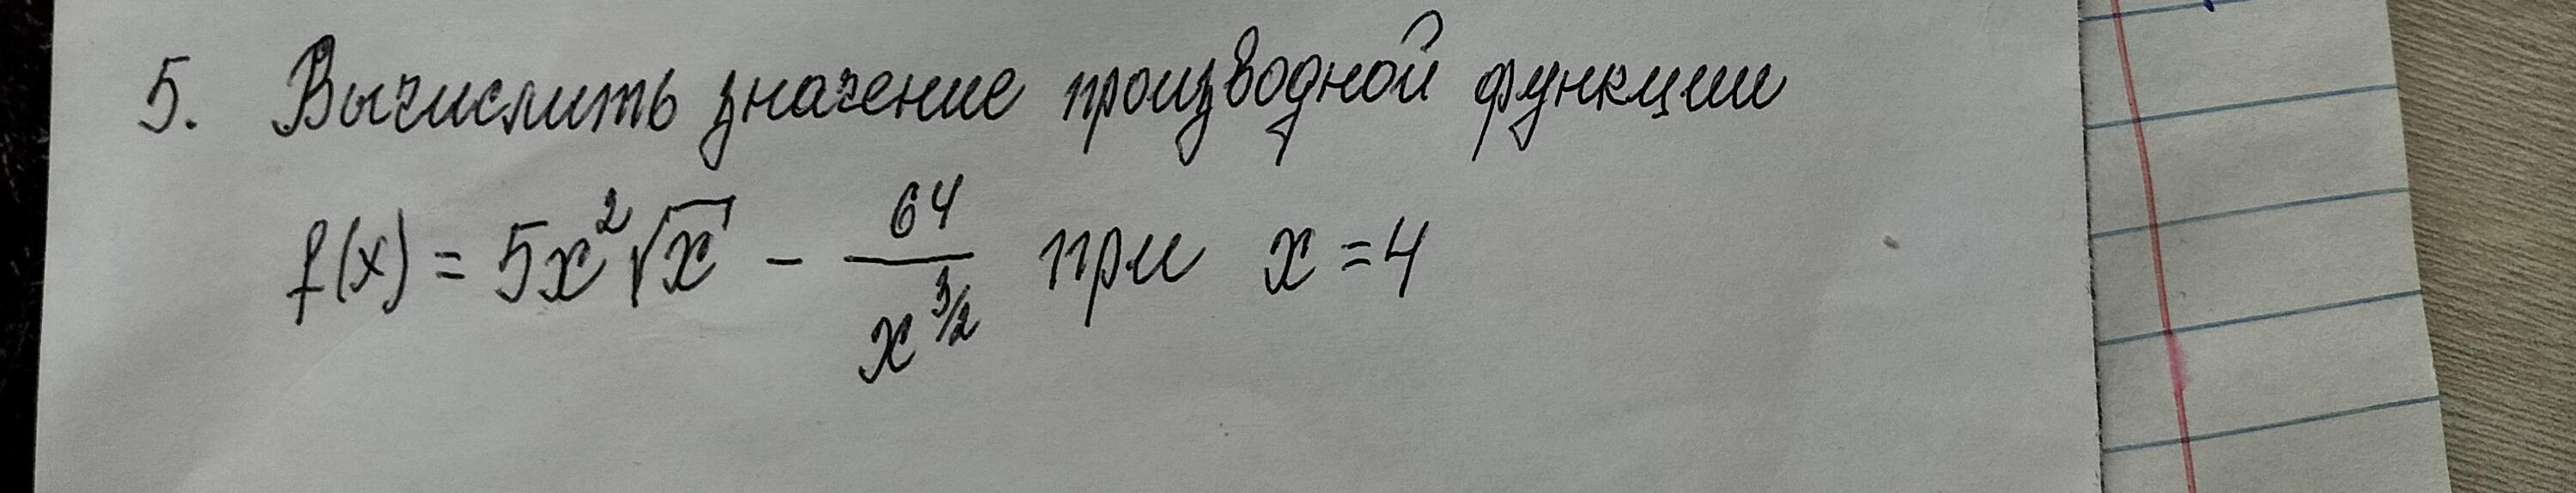 5. Вычислить значение производной функции
f(x) = 5x²√x - 64/x^(3/2) при x = 4